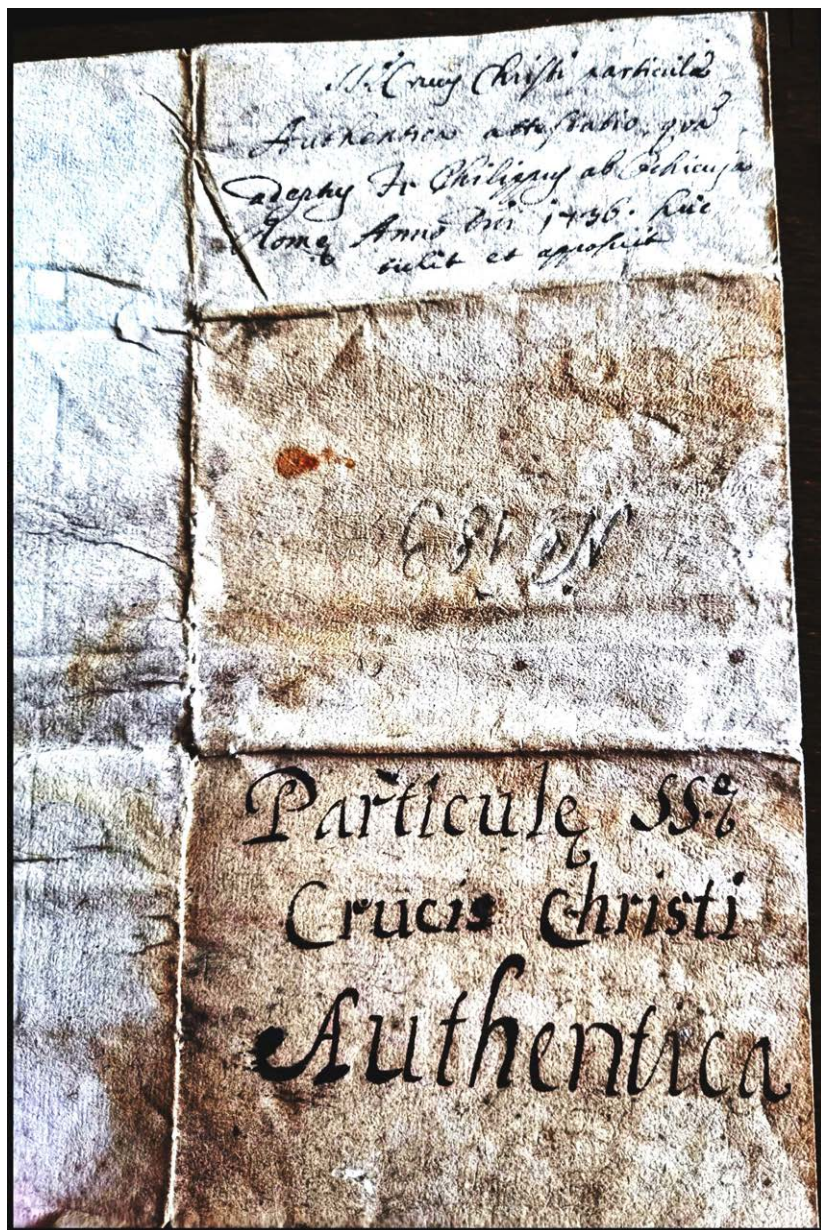 Crucis Christi particulę
Authentica attestatio, qvã
adeptus Fr. Philippus ab
Romę Anno Dni 1736. huc
tulit et apposuit
Particulę SS.ę
Crucis Christi
Authentica